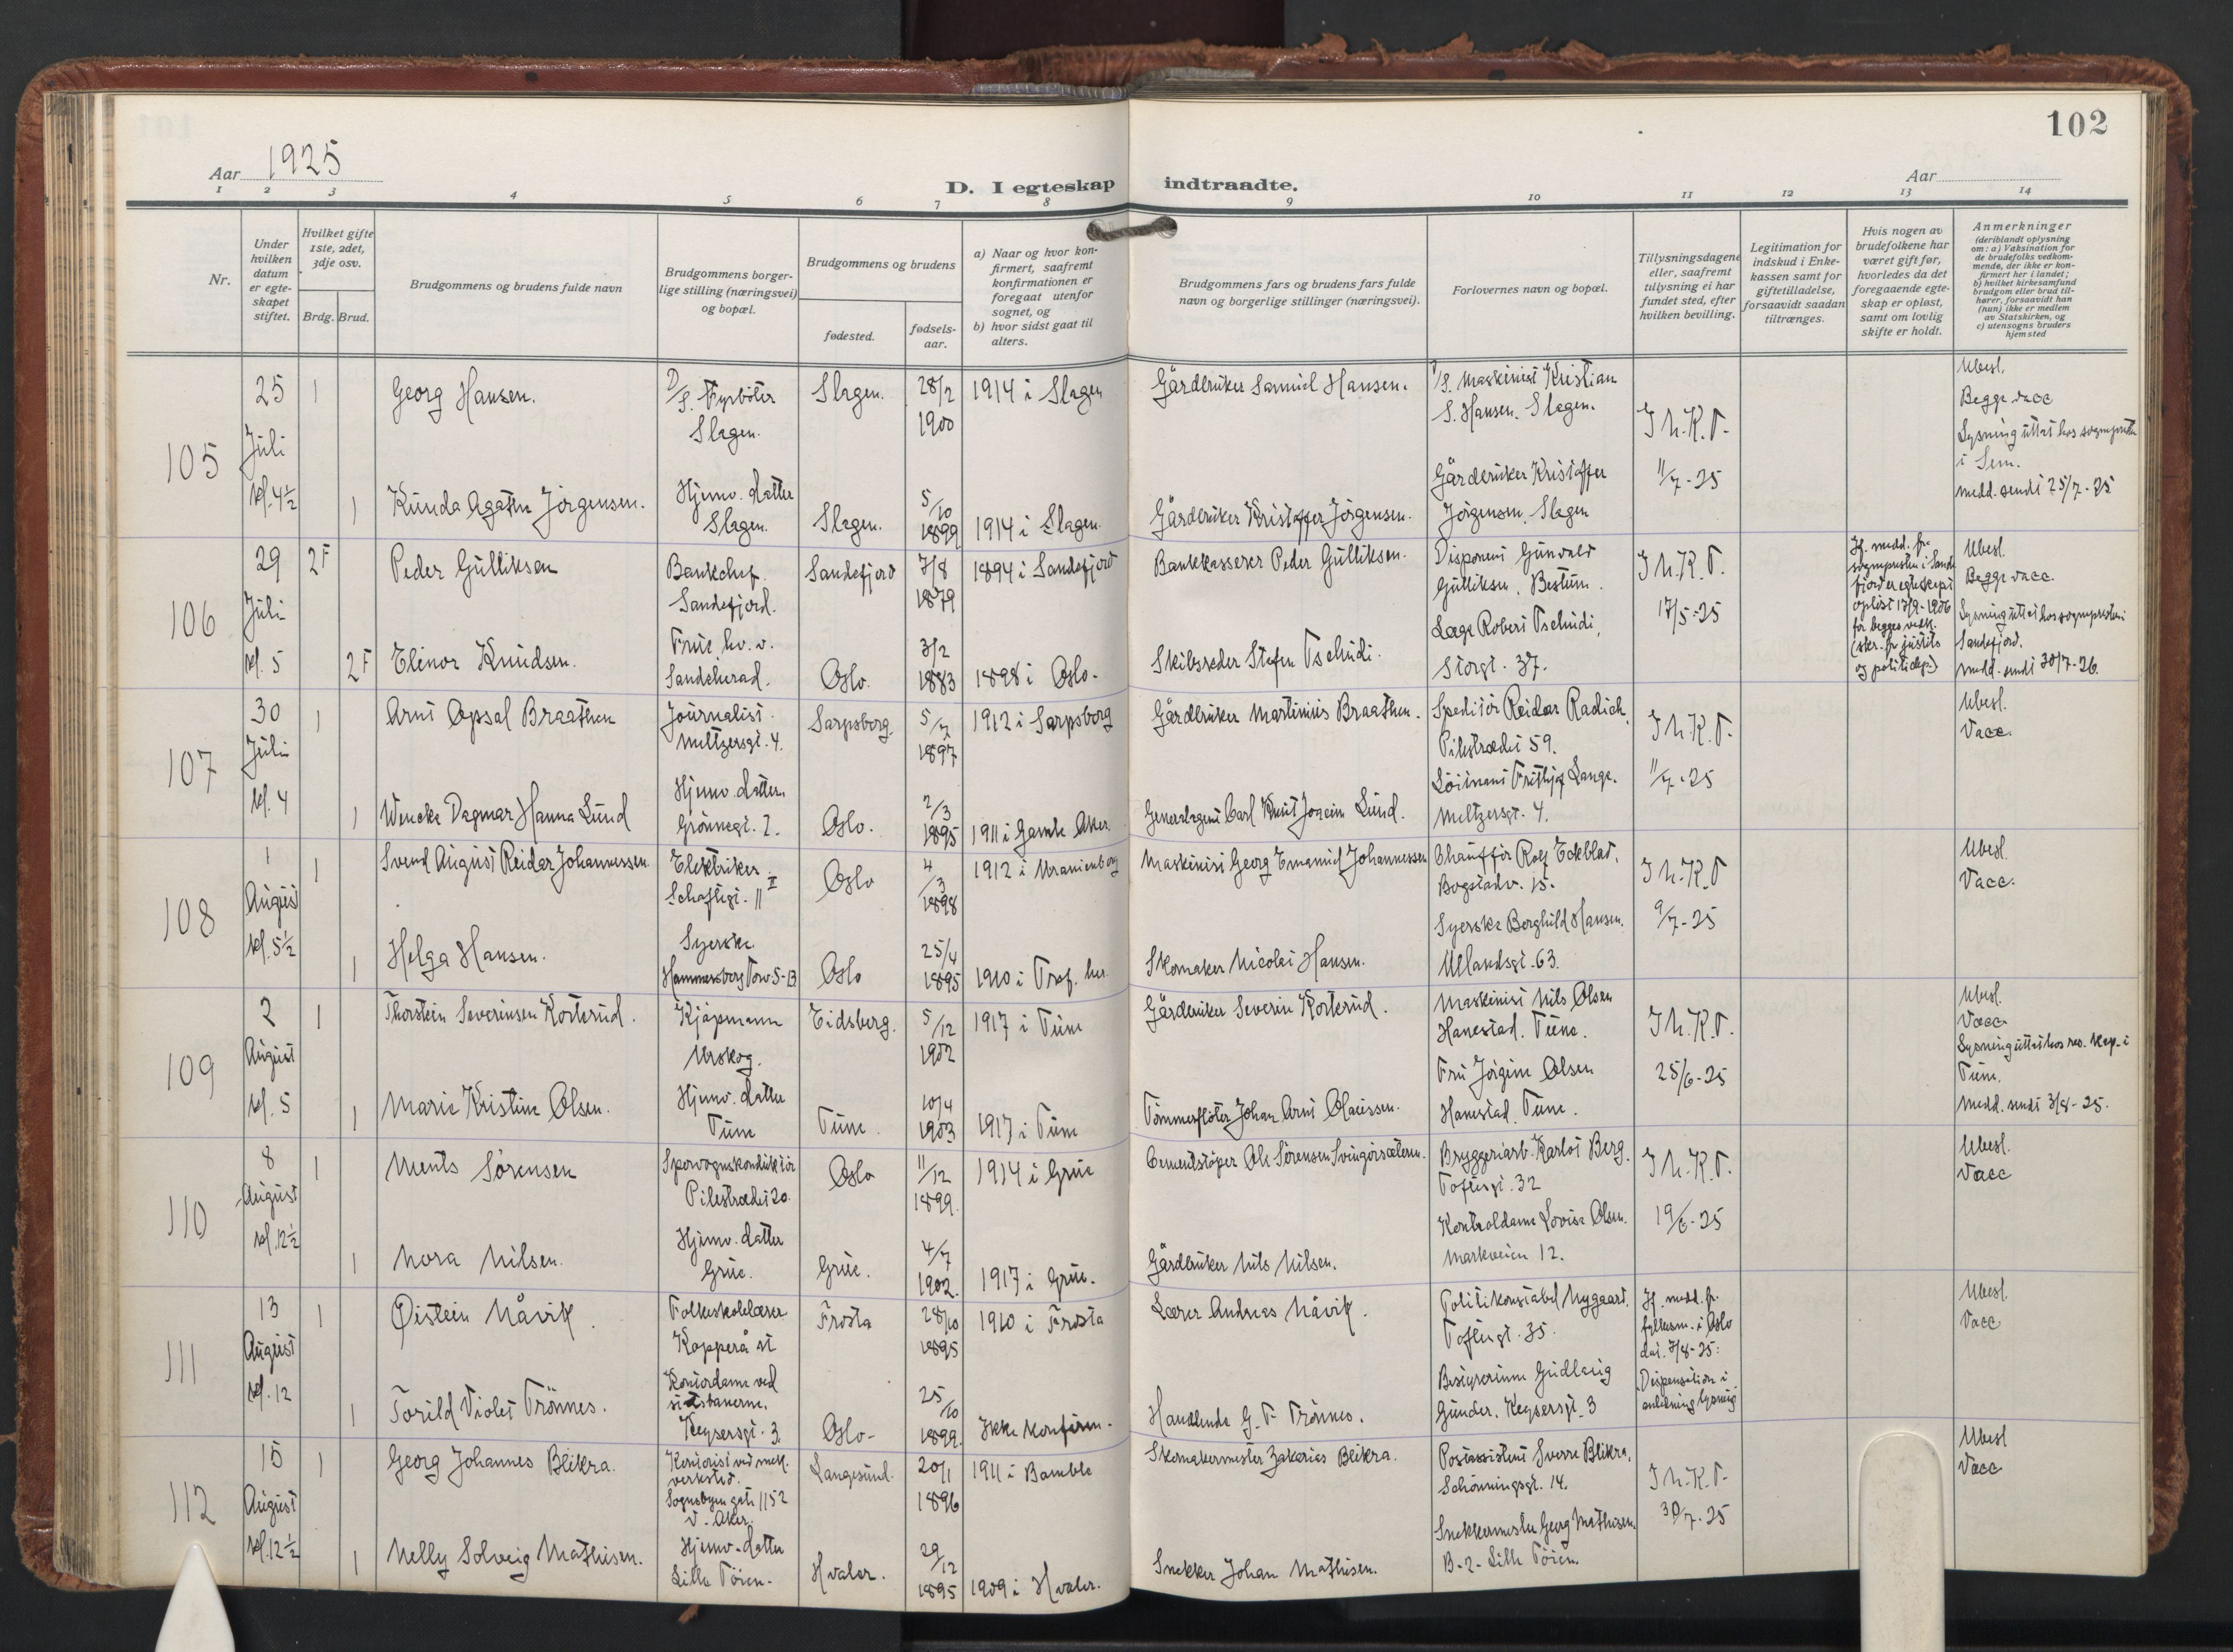 102
Aar 1925
Aar
D. I egteskap indtraadte.
1 2 3 4 5 6 7 8 9 10 11 12 13 14
Nr.
Under hvilken datum er egteskapet stiftet.
Hvilket gifte 1ste, 2det, 3dje osv.
Brdg. Brud.
Brudgommens og brudens fulde navn
Brudgommens borgerlige stilling (næringsvei) og bopæl.
Brudgommens og brudens
fødested.
fødselsaar.
a) Naar og hvor konfirmert, saafremt konfirmationen er foregaat utenfor sognet, og
b) hvor sidst gaat til alters.
Brudgommens fars og brudens fars fulde navn og borgerlige stillinger (næringsvei).
Forlovernes navn og bopæl.
Tillysningsdagene eller, saafremt tillysning ei har fundet sted, efter hvilken bevilling.
Legitimation for indskud i Enkekassen samt for giftetilladelse, forsaavidt saadan tiltrænges.
Hvis nogen av brudefolkene har været gift før, hvorledes da det foregaaende egteskap er opløst, samt om lovlig skifte er holdt.
Anmerkninger
(deriblandt oplysning om: a) Vaksination for de brudefolks vedkommende, der ikke er konfirmert her i landet; b) hvilket kirkesamfund brudgom eller brud tilhører, forsaavidt han (hun) ikke er medlem av Statskirken, og c) utensogns bruders hjemsted
105
25 Juli kl. 4½
1
Georg Hansen.
D/S. Fyrbøter Slagen.
Slagen.
28/2 1900
1914 i Slagen
Gårdbruker Samuel Hansen.
D/S. Maskinist Kristian S. Hansen. Slagen.
J N. R. P.
11/7-25
Ubesl.
Begge vacc
Lysning uttat hos sognepresten i Sem.
Medd. sendt 25/7-25
1
Kunda Agathe Jörgensen.
Hjemv. datter Slagen.
Slagen.
5/10 1899
1914 i Slagen.
Gårdbruker Kristoffer Jörgensen.
Gårdbruker Kristoffer Jörgensen. Slagen
106
29 Juli kl. 5
2 F
Peder Gulliksen
Bankchef. Sandefjord.
Sandefjord
7/8 1879
1894 i Sandefjord
Bankkasserer Peder Gulliksen.
Disponent Gunvald Gulliksen. Bestum.
J N. R. P.
17/5-25
Hf. medd. fra sognepresten i Sandefjord er egteskapet opløst 17/9-1906 for begges vedk. (skr. fr justits og politidep.)
Ubesl.
Begge vacc.
Lysning uttat hos sognepresten i Sandefjord.
Medd. sendt 30/7-26.
2 F
Elinor Knudsen.
Frue, hv. v. Sandeherad.
Oslo.
3/2 1883
1898 i Oslo.
Skibsreder Stefen Tschudi.
Læge Robert Tschudi, Storgt. 37.
107
30 Juli kl. 4
1
Arnt Opsal Braathen
Journalist. Meltzersgt. 4.
Sarpsborg.
5/7 1897
1912 i Sarpsborg
Gårdbruker Martinius Braathen.
Speditör Reidar Radich, Pilestrædet 59.
J N. R. P.
11/7-25
Ubesl.
Vacc.
1
Wencke Dagmar Hanna Lund
Hjemv. datter. Grönnegt. 2.
Oslo.
2/3 1895
1911 i Gamle Aker
Generalagent Carl Knut Joacim Lund.
Löitnant Frithjof Lange. Meltzersgt. 4.
108
1 August kl. 5½
1
Svend August Reidar Johannessen.
Elektriker. Schaftigt. 11 II
Oslo
4/3 1898
1912 i Uranienborg
Maskinist Georg Emanuel Johannessen
Chaufför Rolf Eckblad, Bogstadv. 15.
J N. R. P
9/7-25
Ubesl.
Vacc.
1
Helga Hansen.
Syerske. Hammersborg Torv 5-13
Oslo
25/4 1895
1910 i Tref. her.
Skomaker Nicolai Hansen.
Syerske Borghild Hansen. Ullandsgt. 63.
109
2 August kl. 5
1
Thorstein Severinsen Kosterud.
Kjöpmann Urskog.
Eidsberg.
5/12 1902
1917 i Tune
Gårdbruker Severin Kosterud.
Maskinist Nils Olsen Hanestad. Tune.
J N. R. P.
25/6-25
Ubesl.
Vacc.
Lysning uttat hos res. kap. i Tune.
Medd. sendt 3/8-25.
1
Marie Kristine Olsen.
Hjemv. datter Tune
Tune.
10/4 1903
1917 i Tune
Tömmerflöter Johan Arnt Olaussen.
Fru Jörgine Olsen Hanestad. Tune.
110
8 August kl. 12½
1
Ments Sörensen
Sporvognskonduktör Pilestrædet 20.
Oslo
11/12 1899.
1914 i Grue
Cementstöper Ole Sörensen
Bryggeriarb. Karlot Berg. Toftesgt. 32
J N. R. P.
19/6-25
Ubesl.
Vacc
1
Nora Nilsen.
Hjemv. datter Grue.
Grue.
4/7 1902.
1917 i Grue.
Gårdbruker Nils Nilsen.
Kontroldame Lovise Olsen. Markveien 12.
111
13 August kl. 12
1
Øistein Måvik.
Folkeskolelærer Kopperå st
Frosta
28/10 1895
1910 i Frosta
Lærer Andreas Måvik.
Politikonstabel Nygaard. Toftesgt. 35.
Hf. medd. fr. fylkesm. i Oslo dat. 7/8-25: Dispensation i anledning lysning
Ubesl.
Vacc
1
Torild Violet Trönnes.
Kontordame ved statsbanerne. Keysersgt. 3.
Oslo
25/10 1899.
Ikke konfirm.
Handlende G. F. Trönnes.
Bestyrerinne Gudlaug Gunder. Keysersgt. 3
112
15 August kl. 12½
1
Georg Johannes Blikra.
Kontorist ved mek. verksted. Sognsbyen gate 1152 V. Aker.
Langesund.
20/1 1896
1911 i Bamble
Skomakermester Zakarias Blikra.
Postassistent Sverre Blikra. Schönningsgt. 14.
J N. R. P.
30/7-25
Ubesl
Vacc
1
Nelly Solveig Mathisen.
Hjemv. datter Lille Töien.
Hvaler.
29/12 1895
1909 i Hvaler.
Snekker Johan Mathisen.
Snekkermester Georg Mathisen. B-2- Lille Töien.